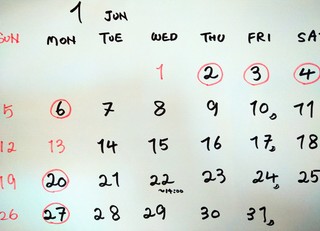 1 JUN
SUN MON TUE WED THU FRI SAT
1 2 3 4
5 6 7 8 9 10 11
12 13 14 15 16 17 18
19 20 21 22 23 24 25
~14:00
26 27 28 29 30 31